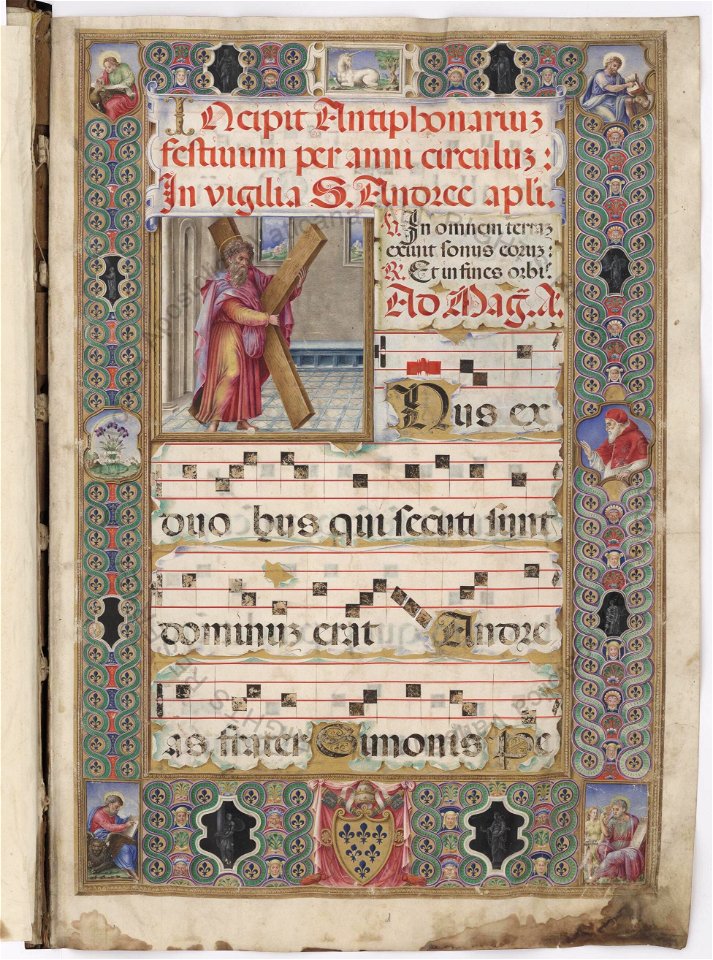 INcipit Antiphonariuz
festiuum per anni circuluz :
In vigilia S. Andree apli.
V. In omnem terraz
exiuit sonus eoruz :
R. Et in fines orbis
Ad Mag. A.
Nus ex
duo bus qui secuti sunt
dominuz erat Andre
as frater Simonis Pe